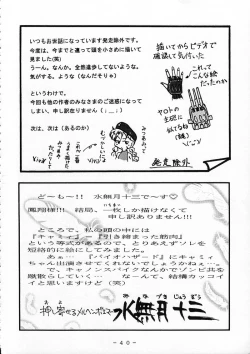 いつもお世話になっています発走除外です。
今度は、今までと違って頭を小さめに描いて
見ました(笑)
うーん、なんか、全然進歩してないような、
気がする、ような(なんだそりゃ)
というわけで。
今回も他の作者のみなさまのご迷惑になって
しまい、申し訳ありません(；_；)
次は、次は(あるのか)
描いてからビデオで
確認して気付いた
これって
こんな絵
だったのか
ヤマトの
主砲に
似てるね
発走除外
どーもー!! 水無月十三で～す♡
鳳翔様!!! 結局、一枚しか描けなくて
申し訳ありません!!!
ところで、私の頭の中には
『キャミィ』=『引き締まった筋肉』
という等式があるので、とりあえずソレを
短絡的に表現してみました。
あぁ…『バイオハザード』にキャミィ
ちゃん出演させてくれないでしょうかねぇ…。
で、キャノンスパイクなんかでゾンビ共を
蹴散らしていく…なんて、結構カッコイイ
と思いますけど(笑)
水無月十三
- 4 0 -